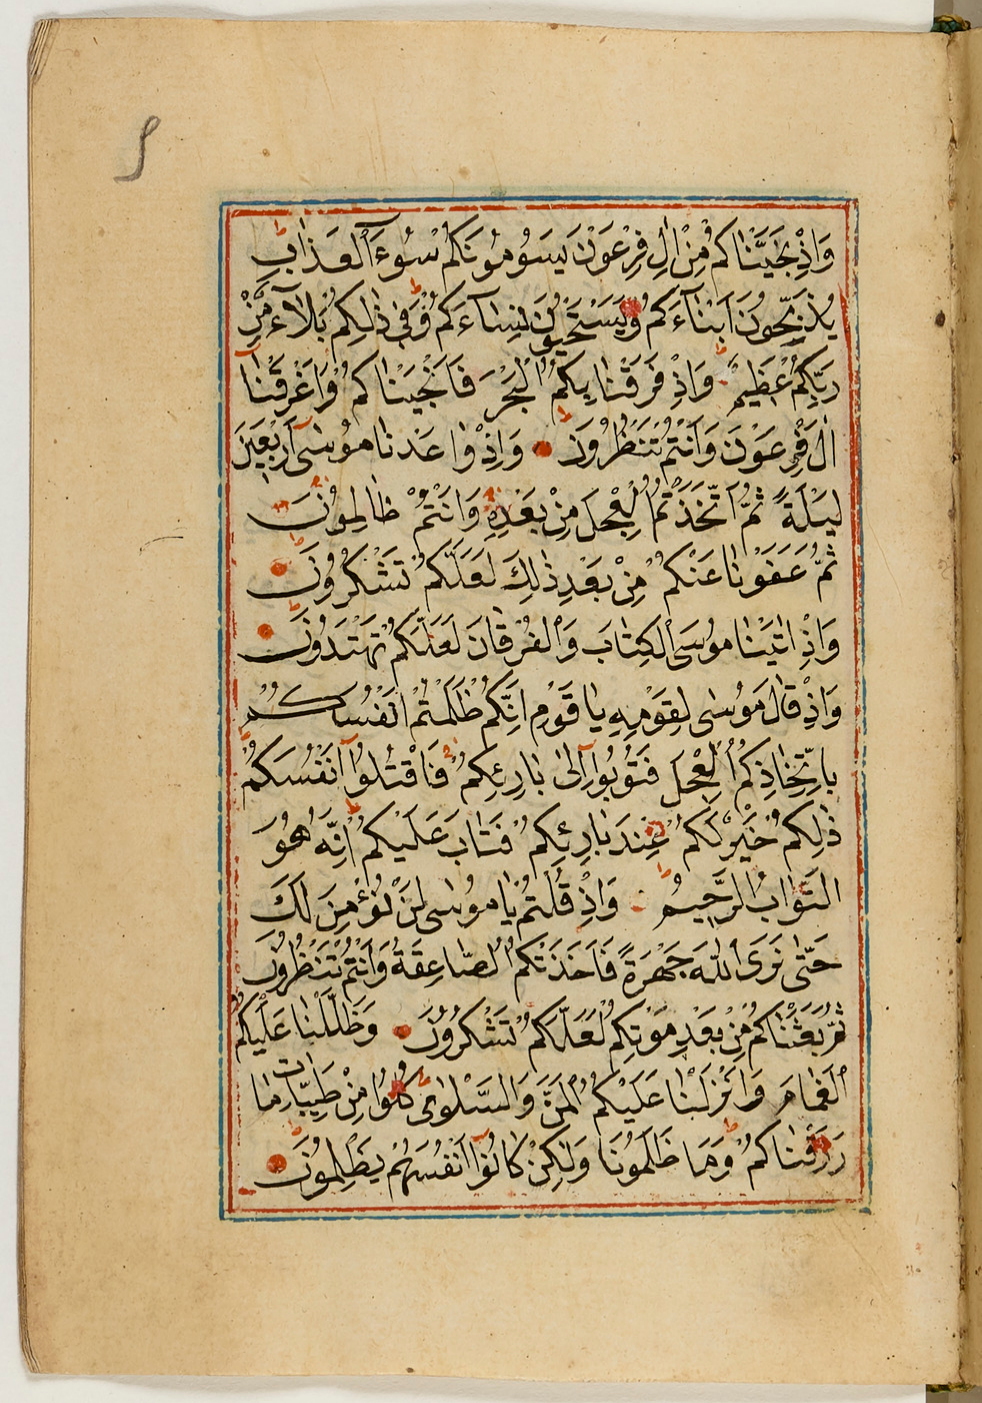 وَاِذْ نَجَيَّنْاكُمْ مِنْ اٰلِ فِرْعَوْنَ يَسُومُونَكُمْ سُوٓءَ الْعَذٰابِ
يُذَبِّحُونَ اَبْنٰاءَكُمْ وَيَسْتَحْيُونَ نِسٰاءَكُمْ وَفِى ذٰلِكُمْ بَلٰاءٌ مِّنْ
رَبِّكُمْ عَظِيمٌ وَاِذْ فَرَقْنٰا بِكُمُ الْبَحْرَ فَاَنْجَيْنٰاكُمْ وَاَغْرَقْنٰا
اٰلَ فِرْعَوْنَ وَاَنْتُمْ تَنْظُرُونَ وَاِذْ وٰاعَدْنٰا مُوسٰى اَرْبَعِينَ
لَيْلَةً ثُمَّ اتَّخَذْتُمُ الْعِجْلَ مِنْ بَعْدِهِ وَاَنْتُمْ ظٰالِمُونَ
ثُمَّ عَفَوْنٰا عَنْكُمْ مِنْ بَعْدِ ذٰلِكَ لَعَلَّكُمْ تَشْكُرُونَ
وَاِذْ اٰتَيْنٰا مُوسَى الْكِتٰابَ وَالْفُرْقٰانَ لَعَلَّكُمْ تَهْتَدُونَ
وَاِذْ قٰالَ مُوسٰى لِقَوْمِهِ يٰا قَوْمِ اِنَّكُمْ ظَلَمْتُمْ اَنْفُسَكُمْ
بِاتِّخٰاذِكُمُ الْعِجْلَ فَتُوبُوا اِلٰى بٰارِئِكُمْ فَاقْتُلُوا اَنْفُسَكُمْ
ذٰلِكُمْ خَيْرٌ لَكُمْ عِنْدَ بٰارِئِكُمْ فَتٰابَ عَلَيْكُمْ اِنَّهُ هُوَ
التَّوّٰابُ الرَّحِيمُ وَاِذْ قُلْتُمْ يٰا مُوسٰى لَنْ نُؤْمِنَ لَكَ
حَتّٰى نَرَى اللّٰهَ جَهْرَةً فَاَخَذَتْكُمُ الصّٰاعِقَةُ وَاَنْتُمْ تَنْظُرُونَ
ثُمَّ بَعَثْنٰاكُمْ مِنْ بَعْدِ مَوْتِكُمْ لَعَلَّكُمْ تَشْكُرُونَ وَظَلَّلْنٰا عَلَيْكُمُ
الْغَمٰامَ وَاَنْزَلْنٰا عَلَيْكُمُ الْمَنَّ وَالسَّلْوٰى كُلُوا مِنْ طَيِّبٰاتِ مٰا
رَزَقْنٰاكُمْ وَمٰا ظَلَمُونٰا وَلٰكِنْ كٰانُوا اَنْفُسَهُمْ يَظْلِمُونَ